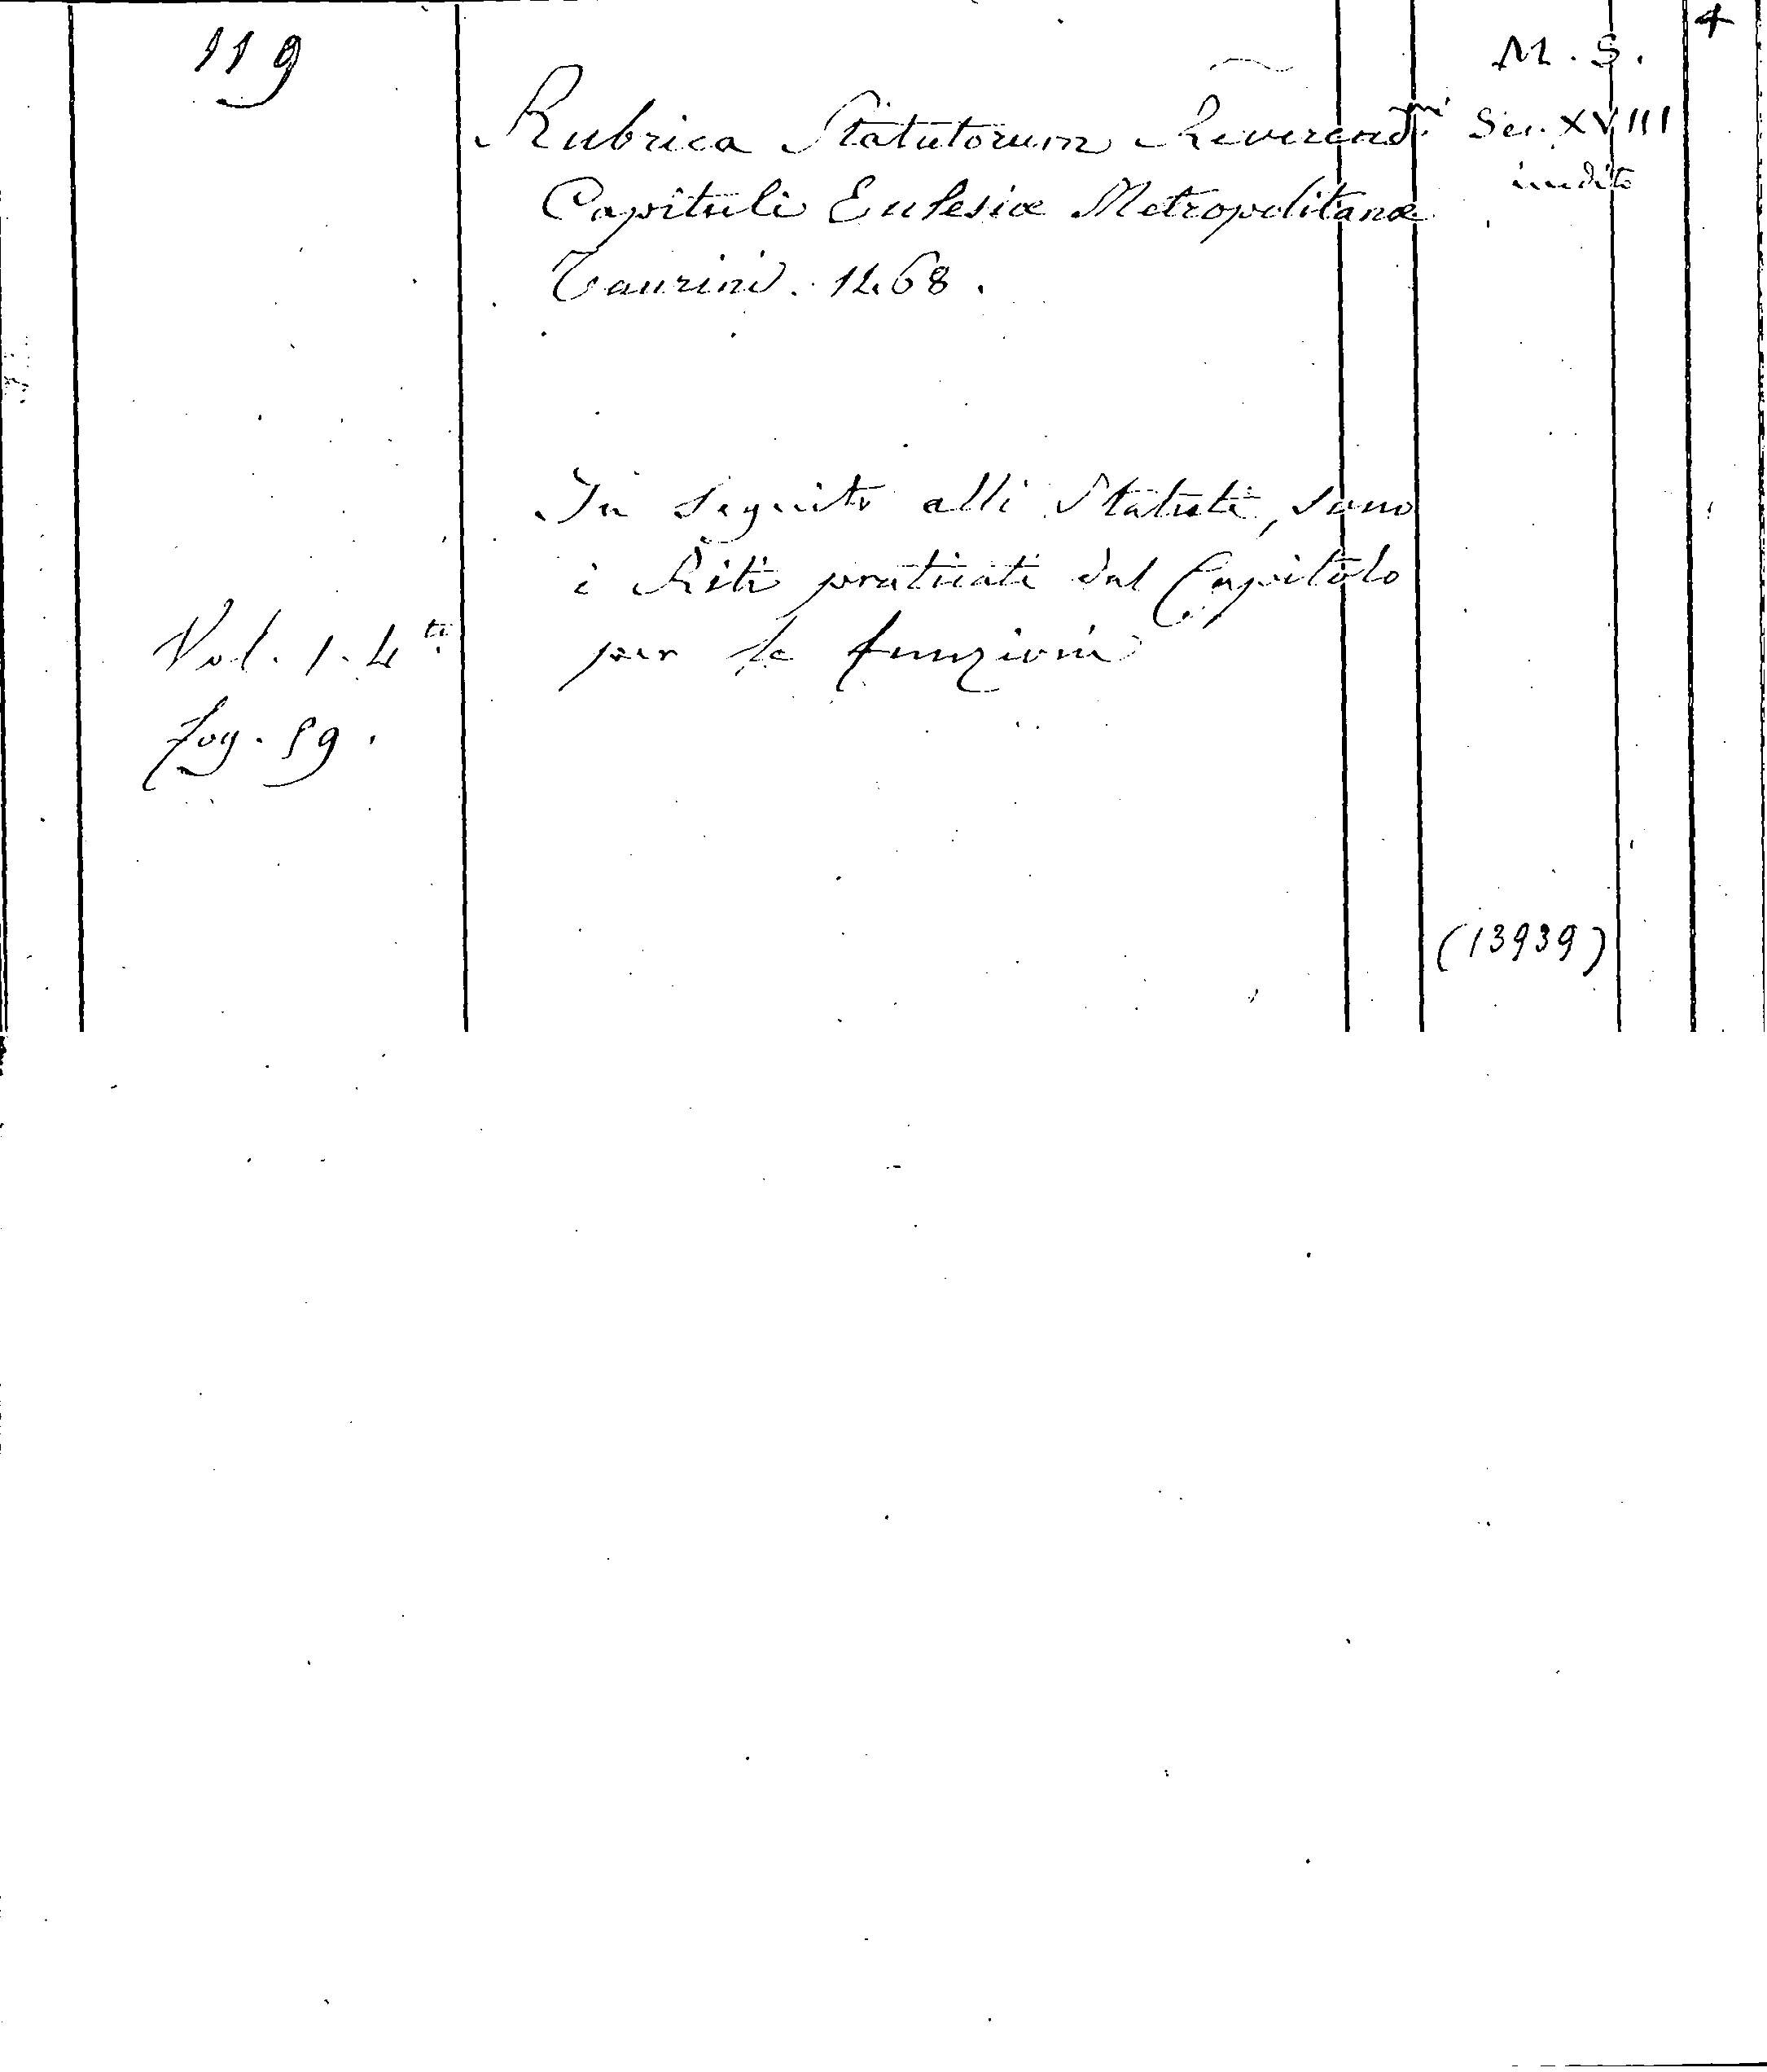 4
119
M. S.
Rubrica Statutorum Reverendmi
Sec. XVIII
Capituli Eclesiæ Metropolitanæ
inedito
Taurini. 1468.
In seguito alli Statuti, sono
i Riti praticati dal Capitolo
Vol. 1. 4to
per le funzioni
fog. 59.
(13939)